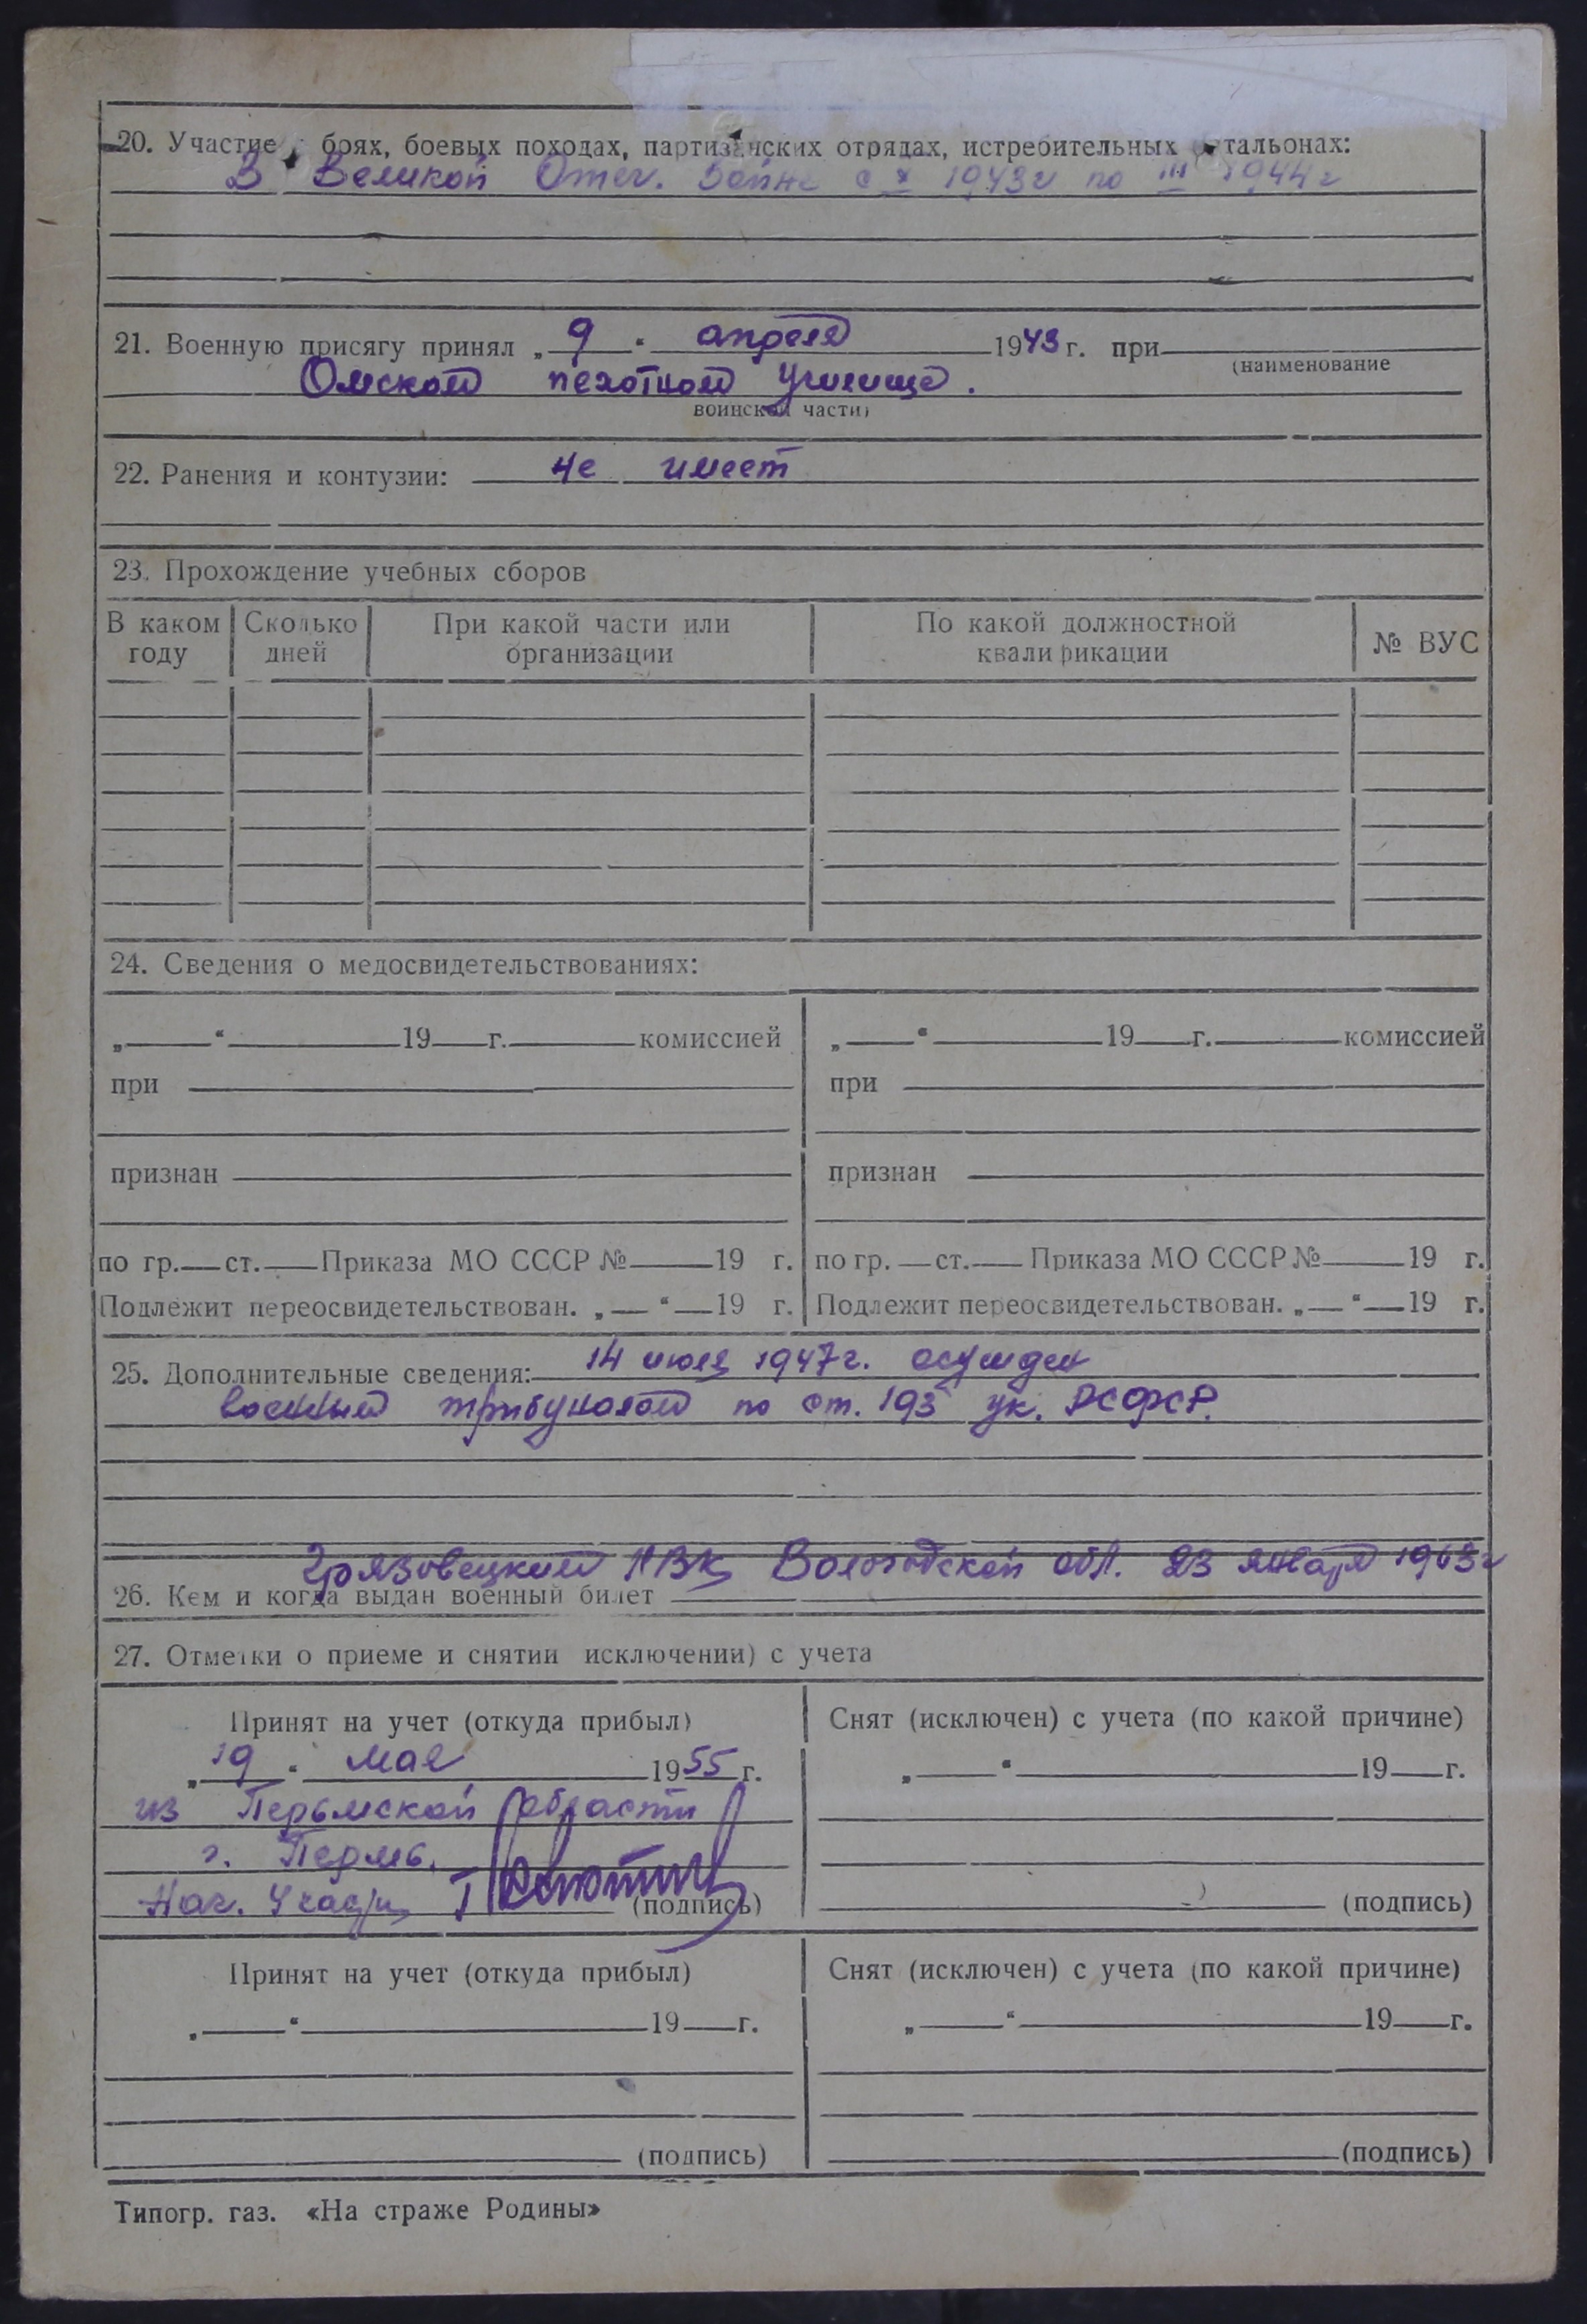 20. Участие боях, боевых походах, партизанских отрядах, истребительных тальонах:
В Великой Отеч. Войне с X 1943г по III 1944г
21. Военную присягу принял „ 9 “ апреля 1943 г. при
(наименование
Омском пехотном училище.
воинской части)
22. Ранения и контузии: не имеет
23. Прохождение учебных сборов
В каком году Сколько дней При какой части или организации По какой должностной квалификации № ВУС
24. Сведения о медосвидетельствованиях:
„ “ 19 г. комиссией „ “ 19 г. комиссией
при при
признан признан
по гр. ст. Приказа МО СССР № 19 г. по гр. ст. Приказа МО СССР № 19 г.
Подлежит переосвидетельствован. „ “ 19 г. Подлежит переосвидетельствован. „ “ 19 г.
25. Дополнительные сведения: 14 июля 1947г. осужден
военным трибуналом по ст. 193 ук. РСФСР.
Грязовецким РВК Вологодской обл. 23 января 1963г
26. Кем и когда выдан военный билет
27. Отметки о приеме и снятии исключении) с учета
Принят на учет (откуда прибыл) Снят (исключен) с учета (по какой причине)
„ 19 “ мая 1955 г. „ “ 19 г.
из Перьмской области
г. Пермь.
Нач. (подпись) (подпись)
Принят на учет (откуда прибыл) Снят (исключен) с учета (по какой причине)
„ “ 19 г. „ “ 19 г.
(подпись) (подпись)
Типогр. газ. «На страже Родины»